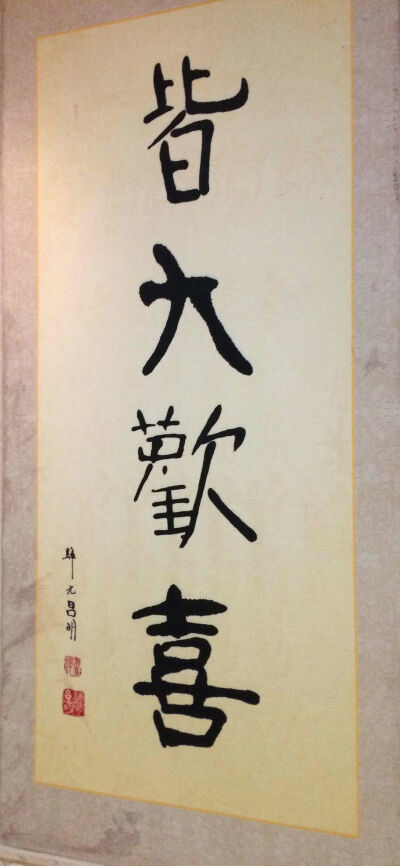 皆大歡喜
歸元昌明